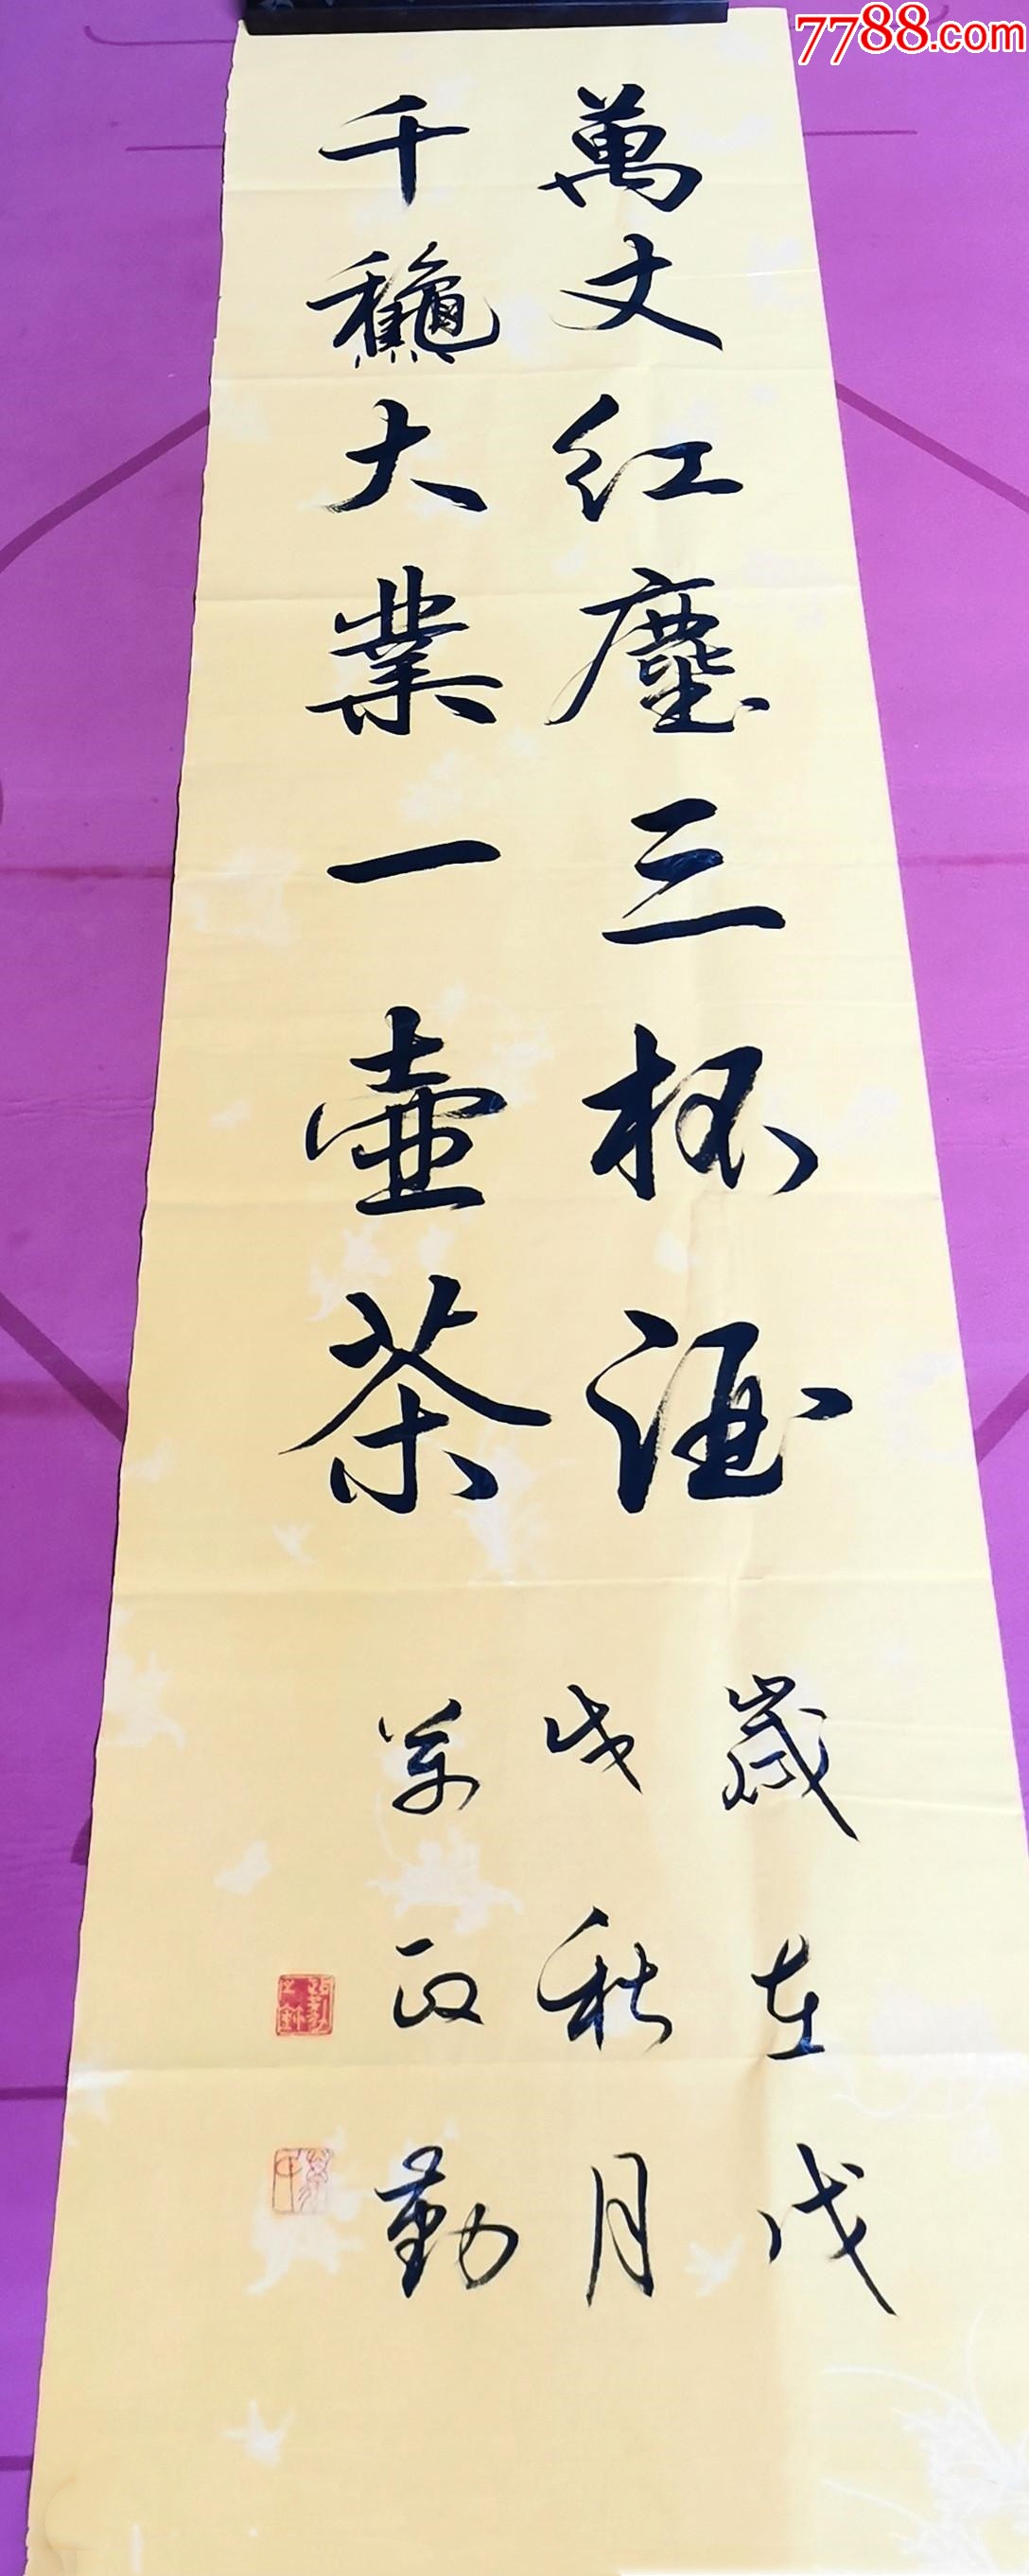 7788.com
萬丈红塵三杯酒
千龝大業一壺茶
歲在戊
戌秋月
政勤